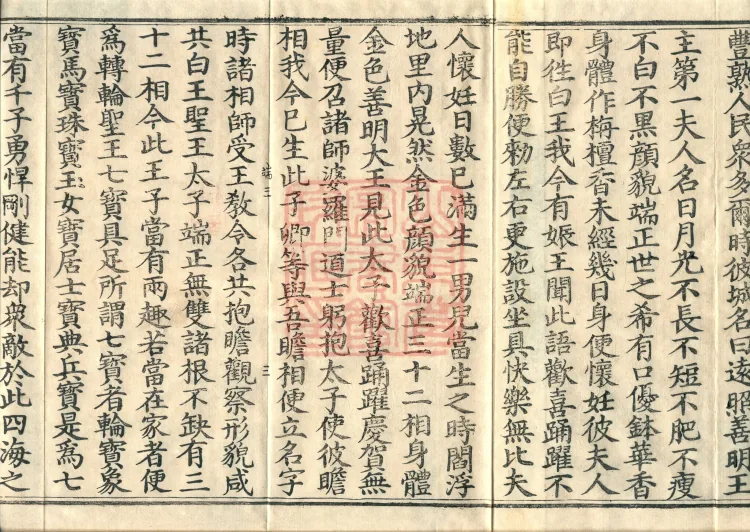 豊熟人民衆多爾時彼城名曰遠照善明王
主第一夫人名日月光不長不短不肥不瘦
不白不黒顔貌端正世之希有口優鉢華香
身體作栴檀香未經幾日身便懷妊彼夫人
即徃白王我今有娠王聞此語歡喜踊躍不
能自勝便勑左右更施設坐具快樂無比夫
人懷妊日數已滿生一男兒當生之時閻浮
地里内晃然金色顔貌端正三十二相身體
金色善明大王見此太子歡喜踊躍慶賀無
量便召諸師婆羅門道士躬抱太子使彼瞻
相我今已生此子卿等與吾瞻相便立名字
端三 三
時諸相師受王教令各共抱瞻觀察形貌咸
共白王聖王太子端正無雙諸根不缺有三
十二相今此王子當有兩趣若當在家者便
爲轉輪聖王七寶具足所謂七寶者輪寶象
寶馬寶珠寶玉女寶居士寶典兵寶是爲七
當有千子勇悍剛健能却衆敵於此四海之